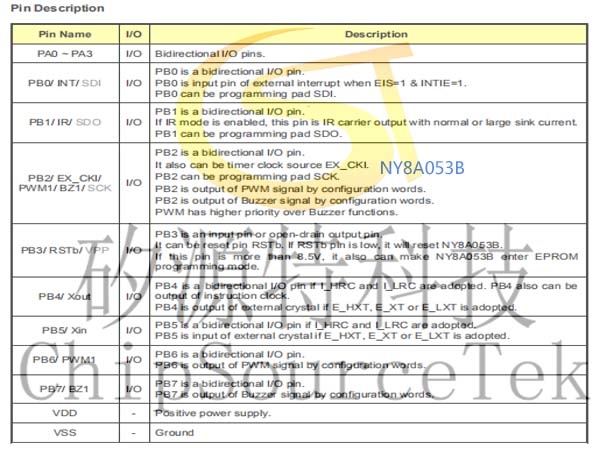 Pin Description
Pin Name I/O Description
PA0 ~ PA3 I/O Bidirectional I/O pins.
PB0/ INT/ SDI I/O PB0 is a bidirectional I/O pin.
PB0 is input pin of external interrupt when EIS=1 & INTIE=1.
PB0 can be programming pad SDI.
PB1/ IR/ SDO I/O PB1 is a bidirectional I/O pin.
If IR mode is enabled, this pin is IR carrier output with normal or large sink current.
PB1 can be programming pad SDO.
PB2/ EX_CKI/
PWM1/ BZ1/ SCK I/O PB2 is a bidirectional I/O pin.
It also can be timer clock source EX_CKI.
PB2 can be programming pad SCK.
PB2 is output of PWM signal by configuration words.
PB2 is output of Buzzer signal by configuration words.
PWM has higher priority over Buzzer functions.
NY8A053B
PB3/ RSTb/ VPP I/O PB3 is an input pin or open-drain output pin.
It can be reset pin RSTb. If RSTb pin is low, it will reset NY8A053B.
If this pin is more than 8.5V, it also can make NY8A053B enter EPROM
programming mode.
PB4/ Xout I/O PB4 is a bidirectional I/O pin if I_HRC and I_LRC are adopted. PB4 also can be
output of instruction clock.
PB4 is output of external crystal if E_HXT, E_XT or E_LXT is adopted.
PB5/ Xin I/O PB5 is a bidirectional I/O pin if I_HRC and I_LRC are adopted.
PB5 is input of external crystal if E_HXT, E_XT or E_LXT is adopted.
PB6/ PWM1 I/O PB6 is a bidirectional I/O pin.
PB6 is output of PWM signal by configuration words.
PB7/ BZ1 I/O PB7 is a bidirectional I/O pin.
PB7 is output of Buzzer signal by configuration words.
VDD - Positive power supply.
VSS - Ground
矽源特科技
ChipSourceTek